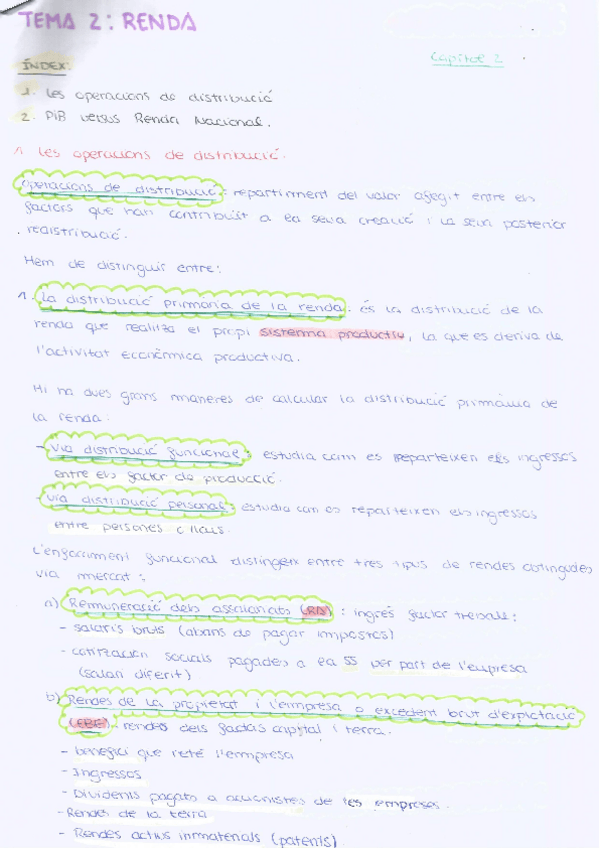 TEMA 2: RENDA
Capítol 2
ÍNDEX:
1. Les operacions de distribució
2. PIB versus Renda Nacional.
1. Les operacions de distribució.
Operacions de distribució: repartiment del valor afegit entre els
factors que han contribuït a la seva creació i la seva posterior
redistribució.
Hem de distinguir entre:
1. La distribució primària de la renda: és la distribució de la
renda que realitza el propi sistema productiu, la que es deriva de
l'activitat econòmica productiva.
Hi ha dues grans maneres de calcular la distribució primària de
la renda:
- Via distribució funcional: estudia com es reparteixen els ingressos
entre els factor de producció.
- Via distribució personal: estudia com es reparteixen els ingressos
entre persones o llars.
L'enfocament funcional distingeix entre tres tipus de rendes obtingudes
via mercat:
a) Remuneració dels assalariats (RA): ingrés factor treball:
- salaris bruts (abans de pagar impostos)
- cotització socials pagades a la SS per part de l'empresa
(salari diferit)
b) Rendes de la propietat i l'empresa o excedent brut d'explotació
(EBE): rendes dels factors capital i terra.
- benefici que reté l'empresa
- Ingressos
- Dividents pagats a accionistes de les empreses.
- Rendes de la terra
- Rendes actius inmaterials (patents)